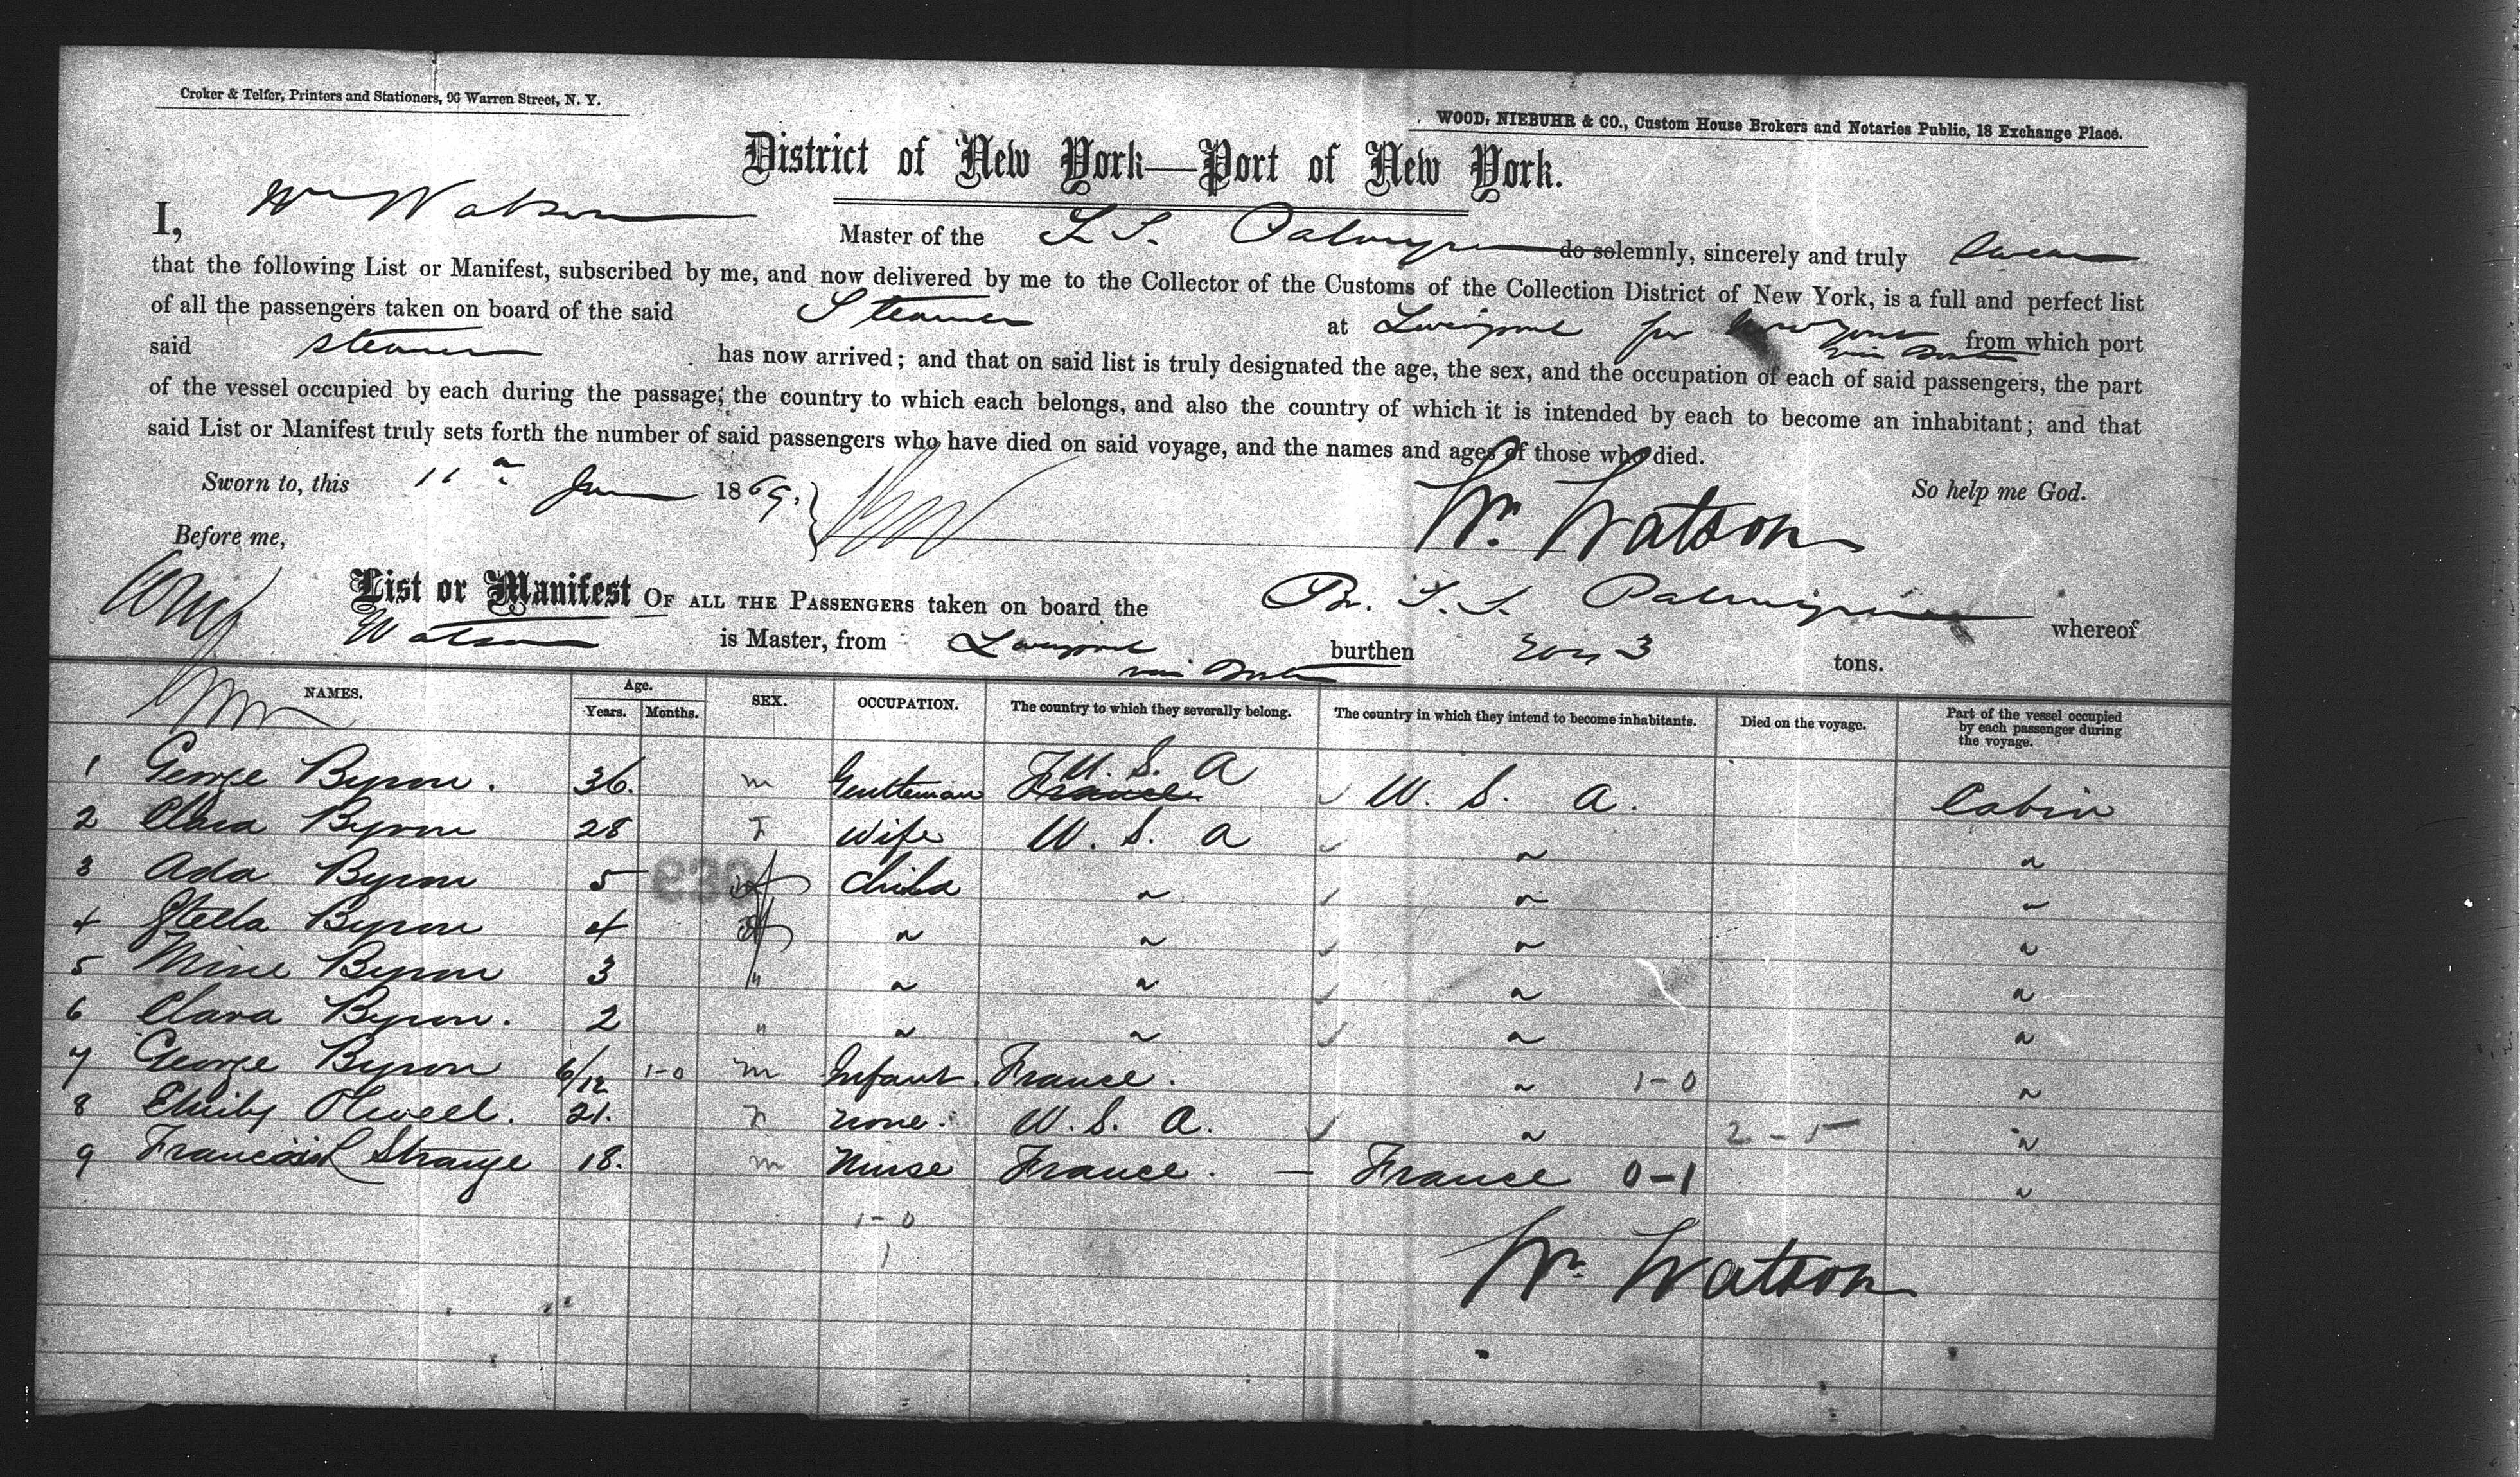 Croker & Telfer, Printers and Stationers, 96 Warren Street, N. Y.
WOOD, NIEBUHR & CO., Custom House Brokers and Notaries Public, 18 Exchange Place.
District of New York—Port of New York.
I, Wm Watson Master of the S.S. Palmyra do solemnly, sincerely and truly Swear
that the following List or Manifest, subscribed by me, and now delivered by me to the Collector of the Customs of the Collection District of New York, is a full and perfect list
of all the passengers taken on board of the said Steamer at Liverpool for New York from which port
said steamer has now arrived; and that on said list is truly designated the age, the sex, and the occupation of each of said passengers, the part
of the vessel occupied by each during the passage; the country to which each belongs, and also the country of which it is intended by each to become an inhabitant; and that
said List or Manifest truly sets forth the number of said passengers who have died on said voyage, and the names and ages of those who died.
Sworn to, this 11 Jun 1869. So help me God.
Wm. Watson
Before me,
List or Manifest OF ALL THE PASSENGERS taken on board the Br. S.S. Palmyra whereof
Watson is Master, from Liverpool burthen tons.
via
NAMES. Age. Years. Months. SEX. OCCUPATION. The country to which they severally belong. The country in which they intend to become inhabitants. Died on the voyage. Part of the vessel occupied by each passenger during the voyage.
1 George Byron. 36. m Gentleman France U. S. A U. S. A. Cabin
2 Clara Byron 28 F wife U. S. A " "
3 Ada Byron 5 f child " " "
4 Stella Byron 4 f " " " "
5 Mine Byron 3 " " " " "
6 Clara Byron. 2 " " " " "
7 George Byron 6/12 1-0 m Infant. France. " 1-0 "
8 Emily Olwell. 21. F none. U. S. A. " 2-5 "
9 Strange 18. m Nurse France. — France 0-1 "
1-0
1
Wm. Watson